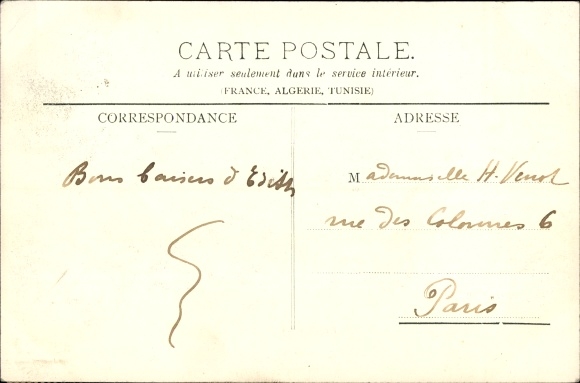 CARTE POSTALE.
A utiliser seulement dans le service intérieur.
(FRANCE, ALGERIE, TUNISIE)
CORRESPONDANCE
ADRESSE
Bons baisers d Edith
Mademoiselle H. Venot
rue des Colonnes 6
Paris